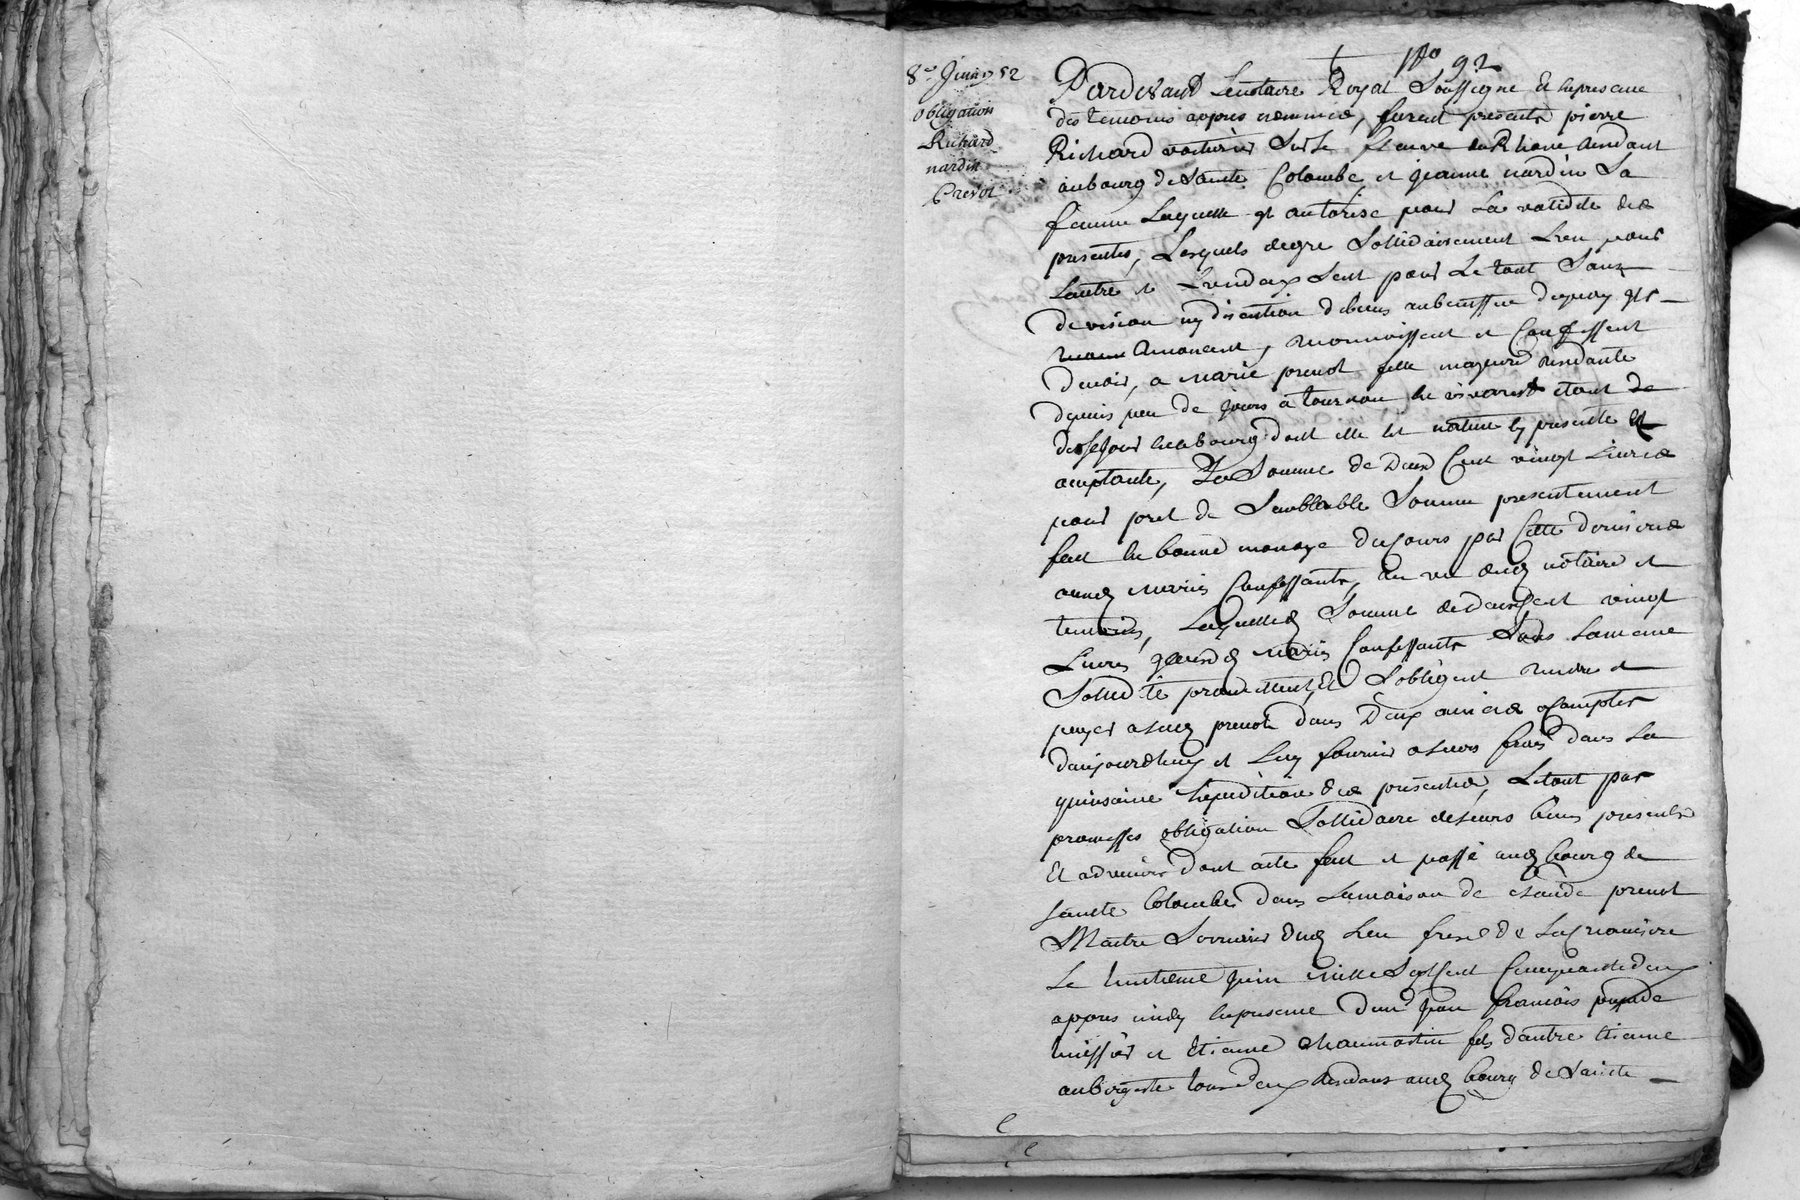 No 92
8e Juin 1752
obligation
Richard
nardin
Prevot
Pardevant Lenotaire Royal Soussigne Et lapresance
des temoins appres nommés, furent presents pierre
Richard voiturier Sur le fleuve du Rhone Residant
aubourg de Sainte Colombe et jeanne nardin Sa
femme Laquelle il autorise pour La validité des
presentes, Lesquels degre Sollidairement L'un pour
Lautre et L'un deux Seul pour Le tout Sans
devision ny discution debiens aubenefice dequoy ils
renoncent, reconnoissent et Confessent
devoir, a Marie prevot fille majeure Residante
depuis peu de jours a tournon en vivarest etant de
desejour enceBourg dont elle Est native Ey presente Et
acceptante, La Somme de Deux Cent vingt Livres
pour pret de Semblable Somme presentement
fait En bonne monoye ducours par Cette derniere
auxd mariés Confessants, au vu dud notaire et
temoins, Laquelled Somme dedeuxCent vingt
Livres lesd mariés Confessants Sous Lameme
Sollidité promettent, Et S'obligent rendre et
payer alad prevot dans Deux années acompter
daujourdhuy et Luy fournir aleurs frais dans La
quinsaine Expedition des presentes, Letout par
promesses obligation Sollidaire deleurs biens presents
Et advenir Dont acte fait et passé aud bourg de
Sainte Colombe dans Lamaison de claude prevot
Maitre Serrurier dud Lieu frere de Lacreanciere
Le huitieme juin Mille SeptCent Cinquante deux
appres midy Enpresence de jean francois
huissier et Etienne chaumartin fils dautre Etienne
aubergiste tous deux Residants aud bourg de Sainte